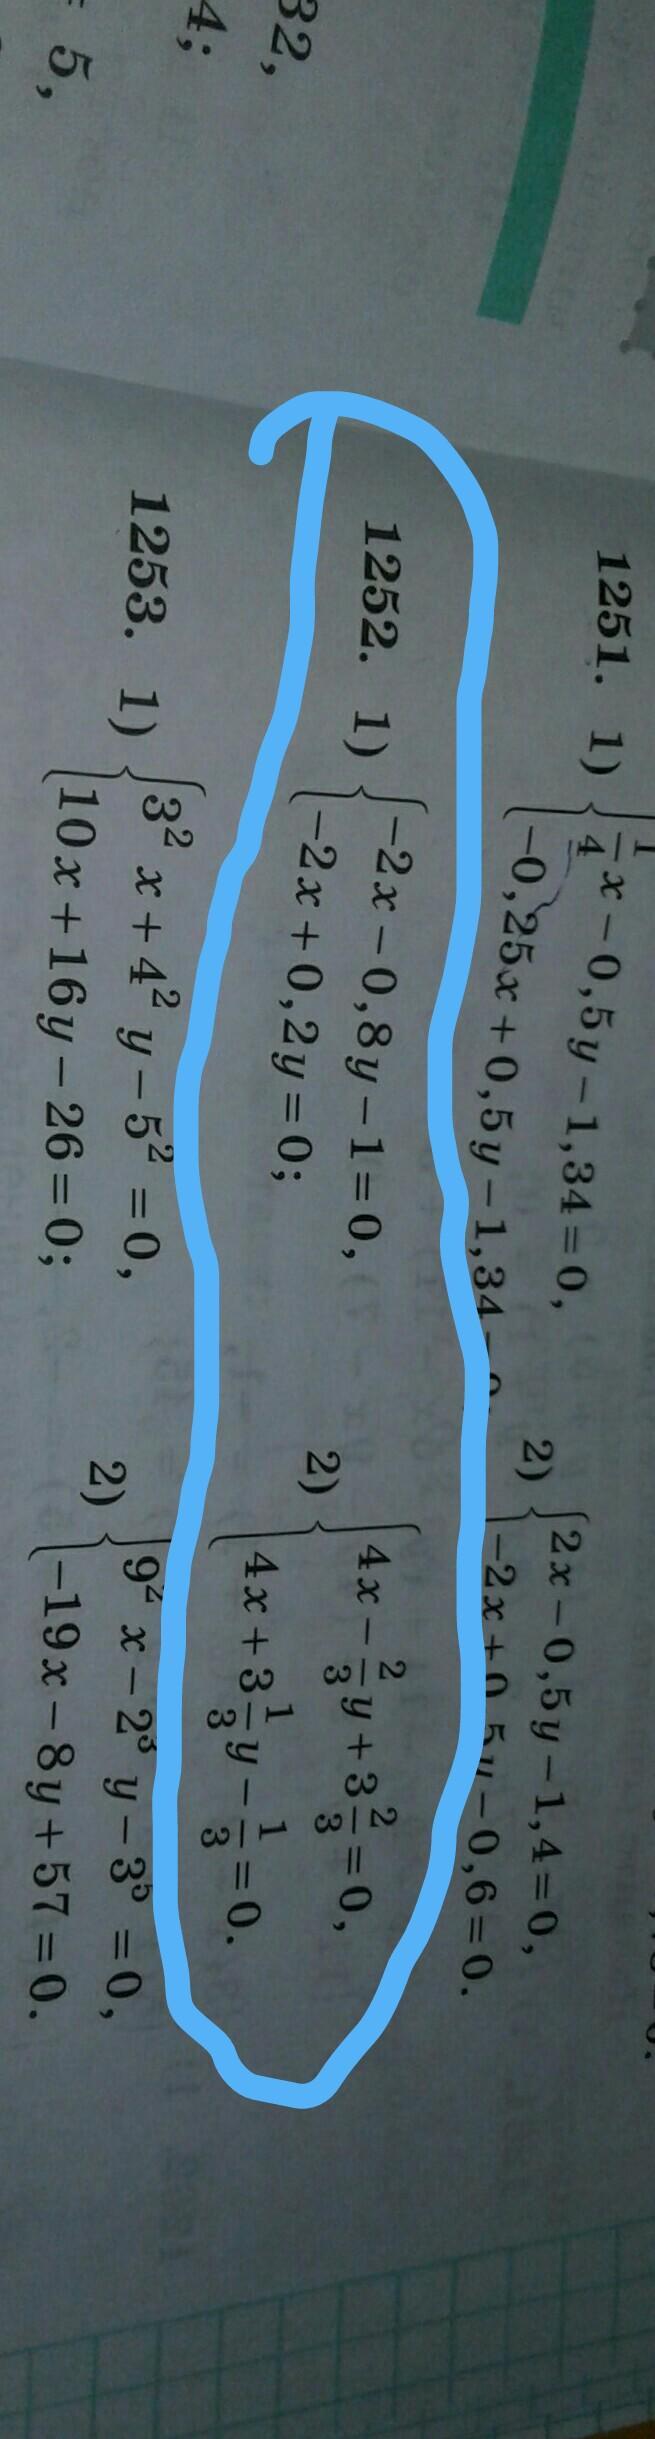 32,
4;
= 5,
1251. 1) { 1/4 x − 0,5y − 1,34 = 0,
−0,25x + 0,5y − 1,34
2) { 2x − 0,5y − 1,4 = 0,
−2x + 0,5y − 0,6 = 0.
1252. 1) { −2x − 0,8y − 1 = 0,
−2x + 0,2y = 0;
2) { 4x − 2/3 y + 3 2/3 = 0,
4x + 3 1/3 y − 1/3 = 0.
1253. 1) { 3² x + 4² y − 5² = 0,
10x + 16y − 26 = 0;
2) { 9² x − 2³ y − 3⁵ = 0,
−19x − 8y + 57 = 0.